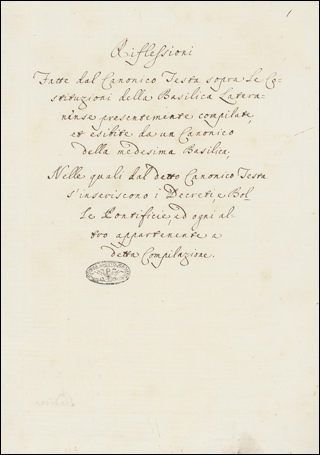 1
Riflessioni
Fatte dal Canonico Testa sopra le Co-
stituzioni della Basilica Latera-
nense presentemente compilate,
et esibite da un Canonico
della medesima Basilica,
Nelle quali dal detto Canonico Testa
s'inseriscono i Decreti, e Bol-
le Pontificie, ed ogni al
tro appartenente a
detta Compilazione.